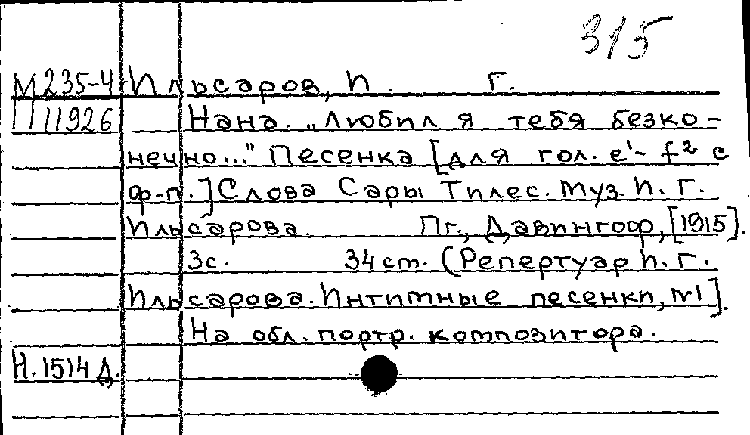 315
М 235-4 Ильсаров, И. Г.
11926 Нана. „Любил я тебя безко-
нечно..." Песенка [для гол. e¹- f² с
ф-п.] Слова Сары Тилес. Муз. И. Г.
Ильсарова. Пг., Давингоф, [1915].
3с. 34 см. (Репертуар И. Г.
Ильсарова. Интимные песенки, №1].
На обл. портр. композитора.
Н. 1514 Д.